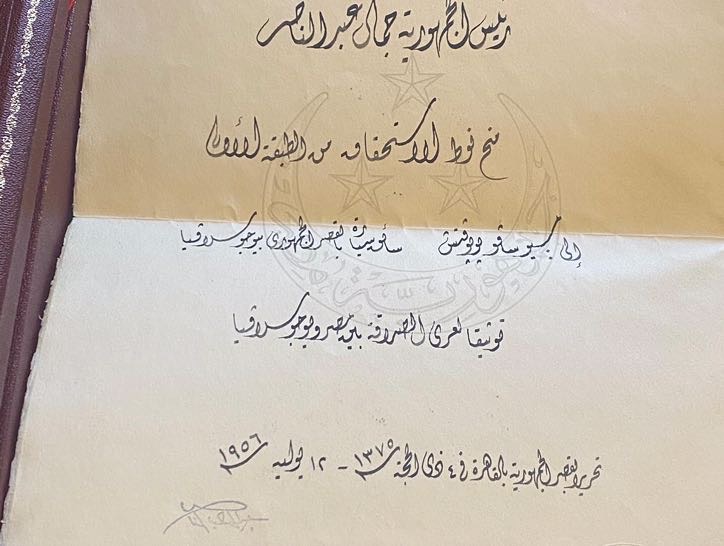 رئيس الجمهورية جمال عبد الناصر
منح نوط الاستحقاق من الطبقة الأولى
إلى سافو يوفتش سائق سيارة بالقصر الجمهوري بيوجوسلافيا
توثيقا لعرى الصداقة بين مصر ويوجوسلافيا
تحريرا بقصر الجمهورية بالقاهرة في ٤ ذى الحجة ١٣٧٥ - ١٢ يوليه ١٩٥٦